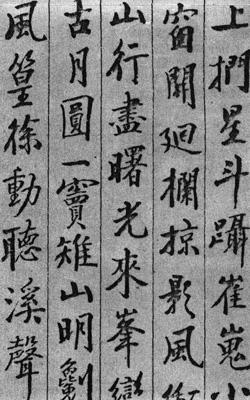 上捫星斗躡崔嵬小
窗開廻欄掠影風
山行盡曙光來峯巒
古月圓一竇雉山明
風篁徐動聽溪聲